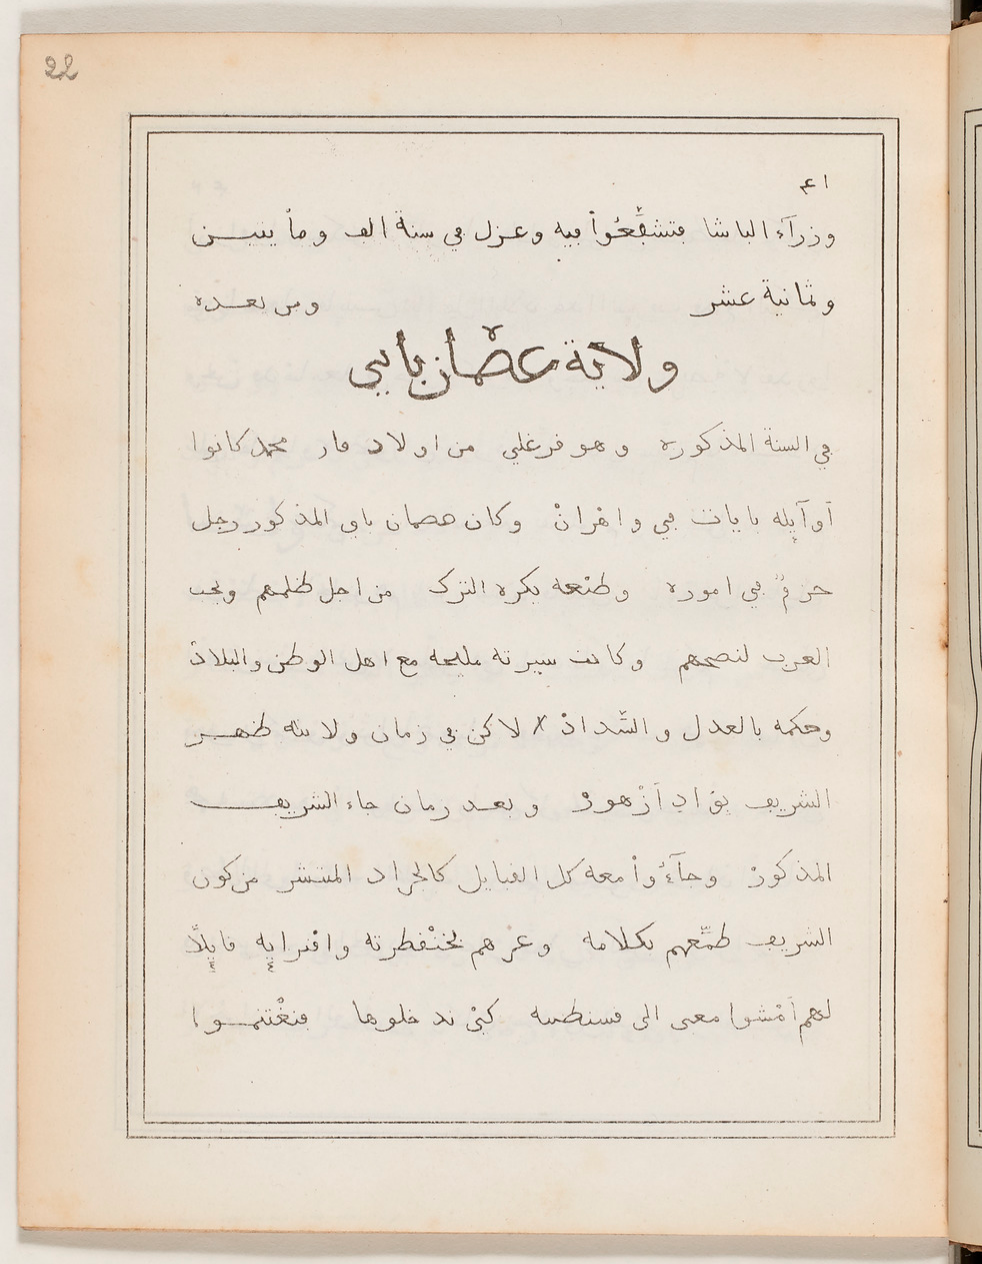 22
٤١
وزرآء الباشا فتشفّعُواْ فيه وعزل في سنة الف وماْ يتيـــن
وثمانية عشر ومن بعـــده
ولاية عصْمان باي
في السنة المذكوره وهو فرغلي من اولاد فار محمد كانوا
أوآيله بايات في واهْرانْ وكان هصمان باي المذكور رجل
حزمٌ في اموره وطبْعه يكره الترك من اجل ظلمهم ويحب
العرب لنصحهم وكانت سيرته مليحه مع اهل الوطن والبلادْ
وحكمه بالعدل والسّدادْ لاكن في زمان ولايته ظهـــر
الشريف بوَادِ أزْهورْ وبعـد زمان جاء الشريـــف
المذكورْ وجآءُواْ معه كل القبايل كالجراد المنتشر من كون
الشريف طمّعهم بكلامه وغرهم وافترايِه قايِلاً
لهم أمْشوا معى الى قسنطينه كيْ ندخلوها فنغْتنمـــوا